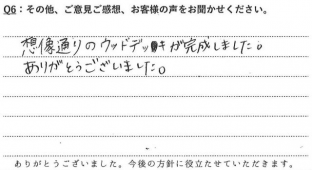 Q6：その他、ご意見ご感想、お客様の声をお聞かせください。
想像通りのウッドデッキが完成しました。
ありがとうございました。
ありがとうございました。今後の方針に役立たせていただきます。